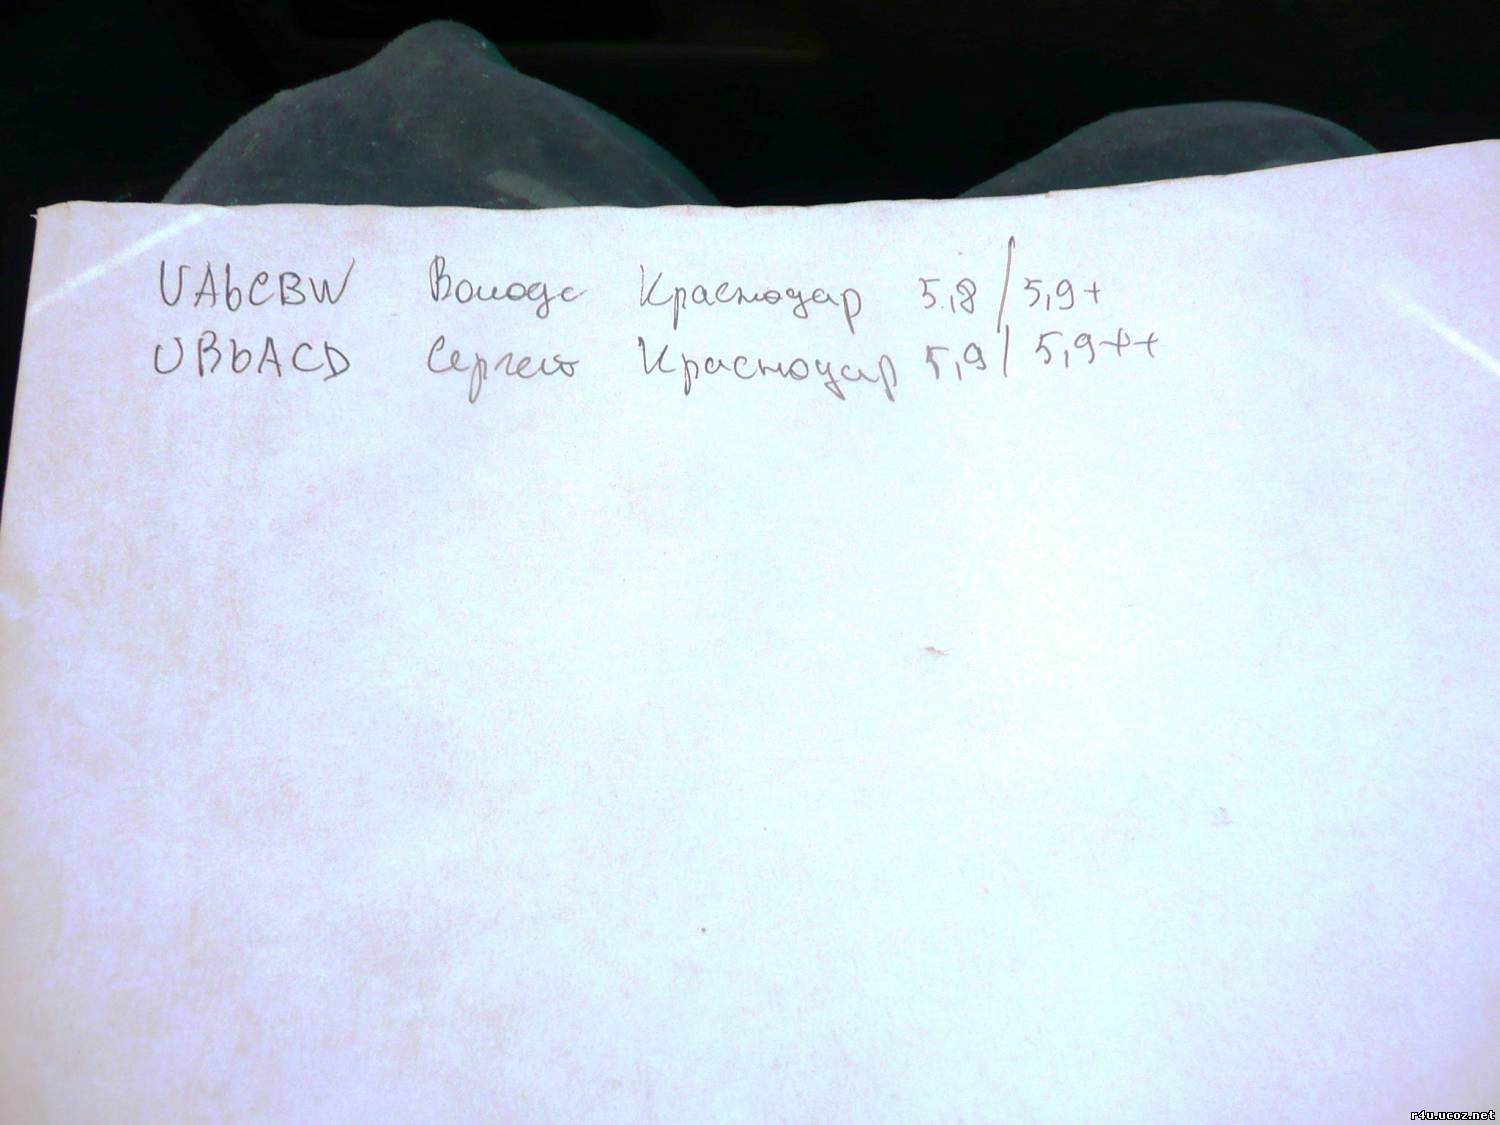 UA6CBW Володя Краснодар 5.8 / 5,9+
UB6ACD Сергей Краснодар 5,9 / 5,9++
r4u.ucoz.net